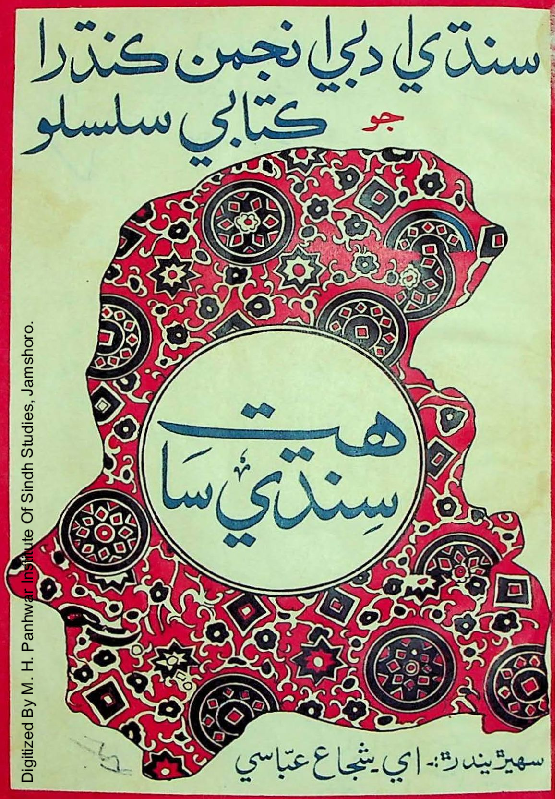 سنڌي ادبي انجمن ڪنڌرا
جو ڪتابي سلسلو
سنڌي ساهت
سهيڙيندڙ:- اي۔شجاع عبّاسي
Digitized By M. H. Panhwar Institute Of Sindh Studies, Jamshoro.